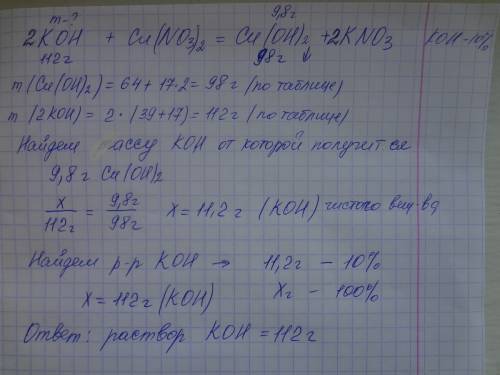 m-? 9,8г
2KOH + Cu(NO3)2 = Cu(OH)2 ↓ + 2KNO3 KOH-10%
112г 98г
m (Cu(OH)2) = 64 + 17·2 = 98г (по таблице)
m (2KOH) = 2·(39+17) = 112г (по таблице)
Найдем массу KOH от которой получится
9,8г Cu(OH)2
x/112г = 9,8г/98г x = 11,2г (KOH) чистого вещ-ва
Найдем р-р KOH → 11,2г - 10%
x = 112г (KOH) xг - 100%
Ответ: раствор KOH = 112г